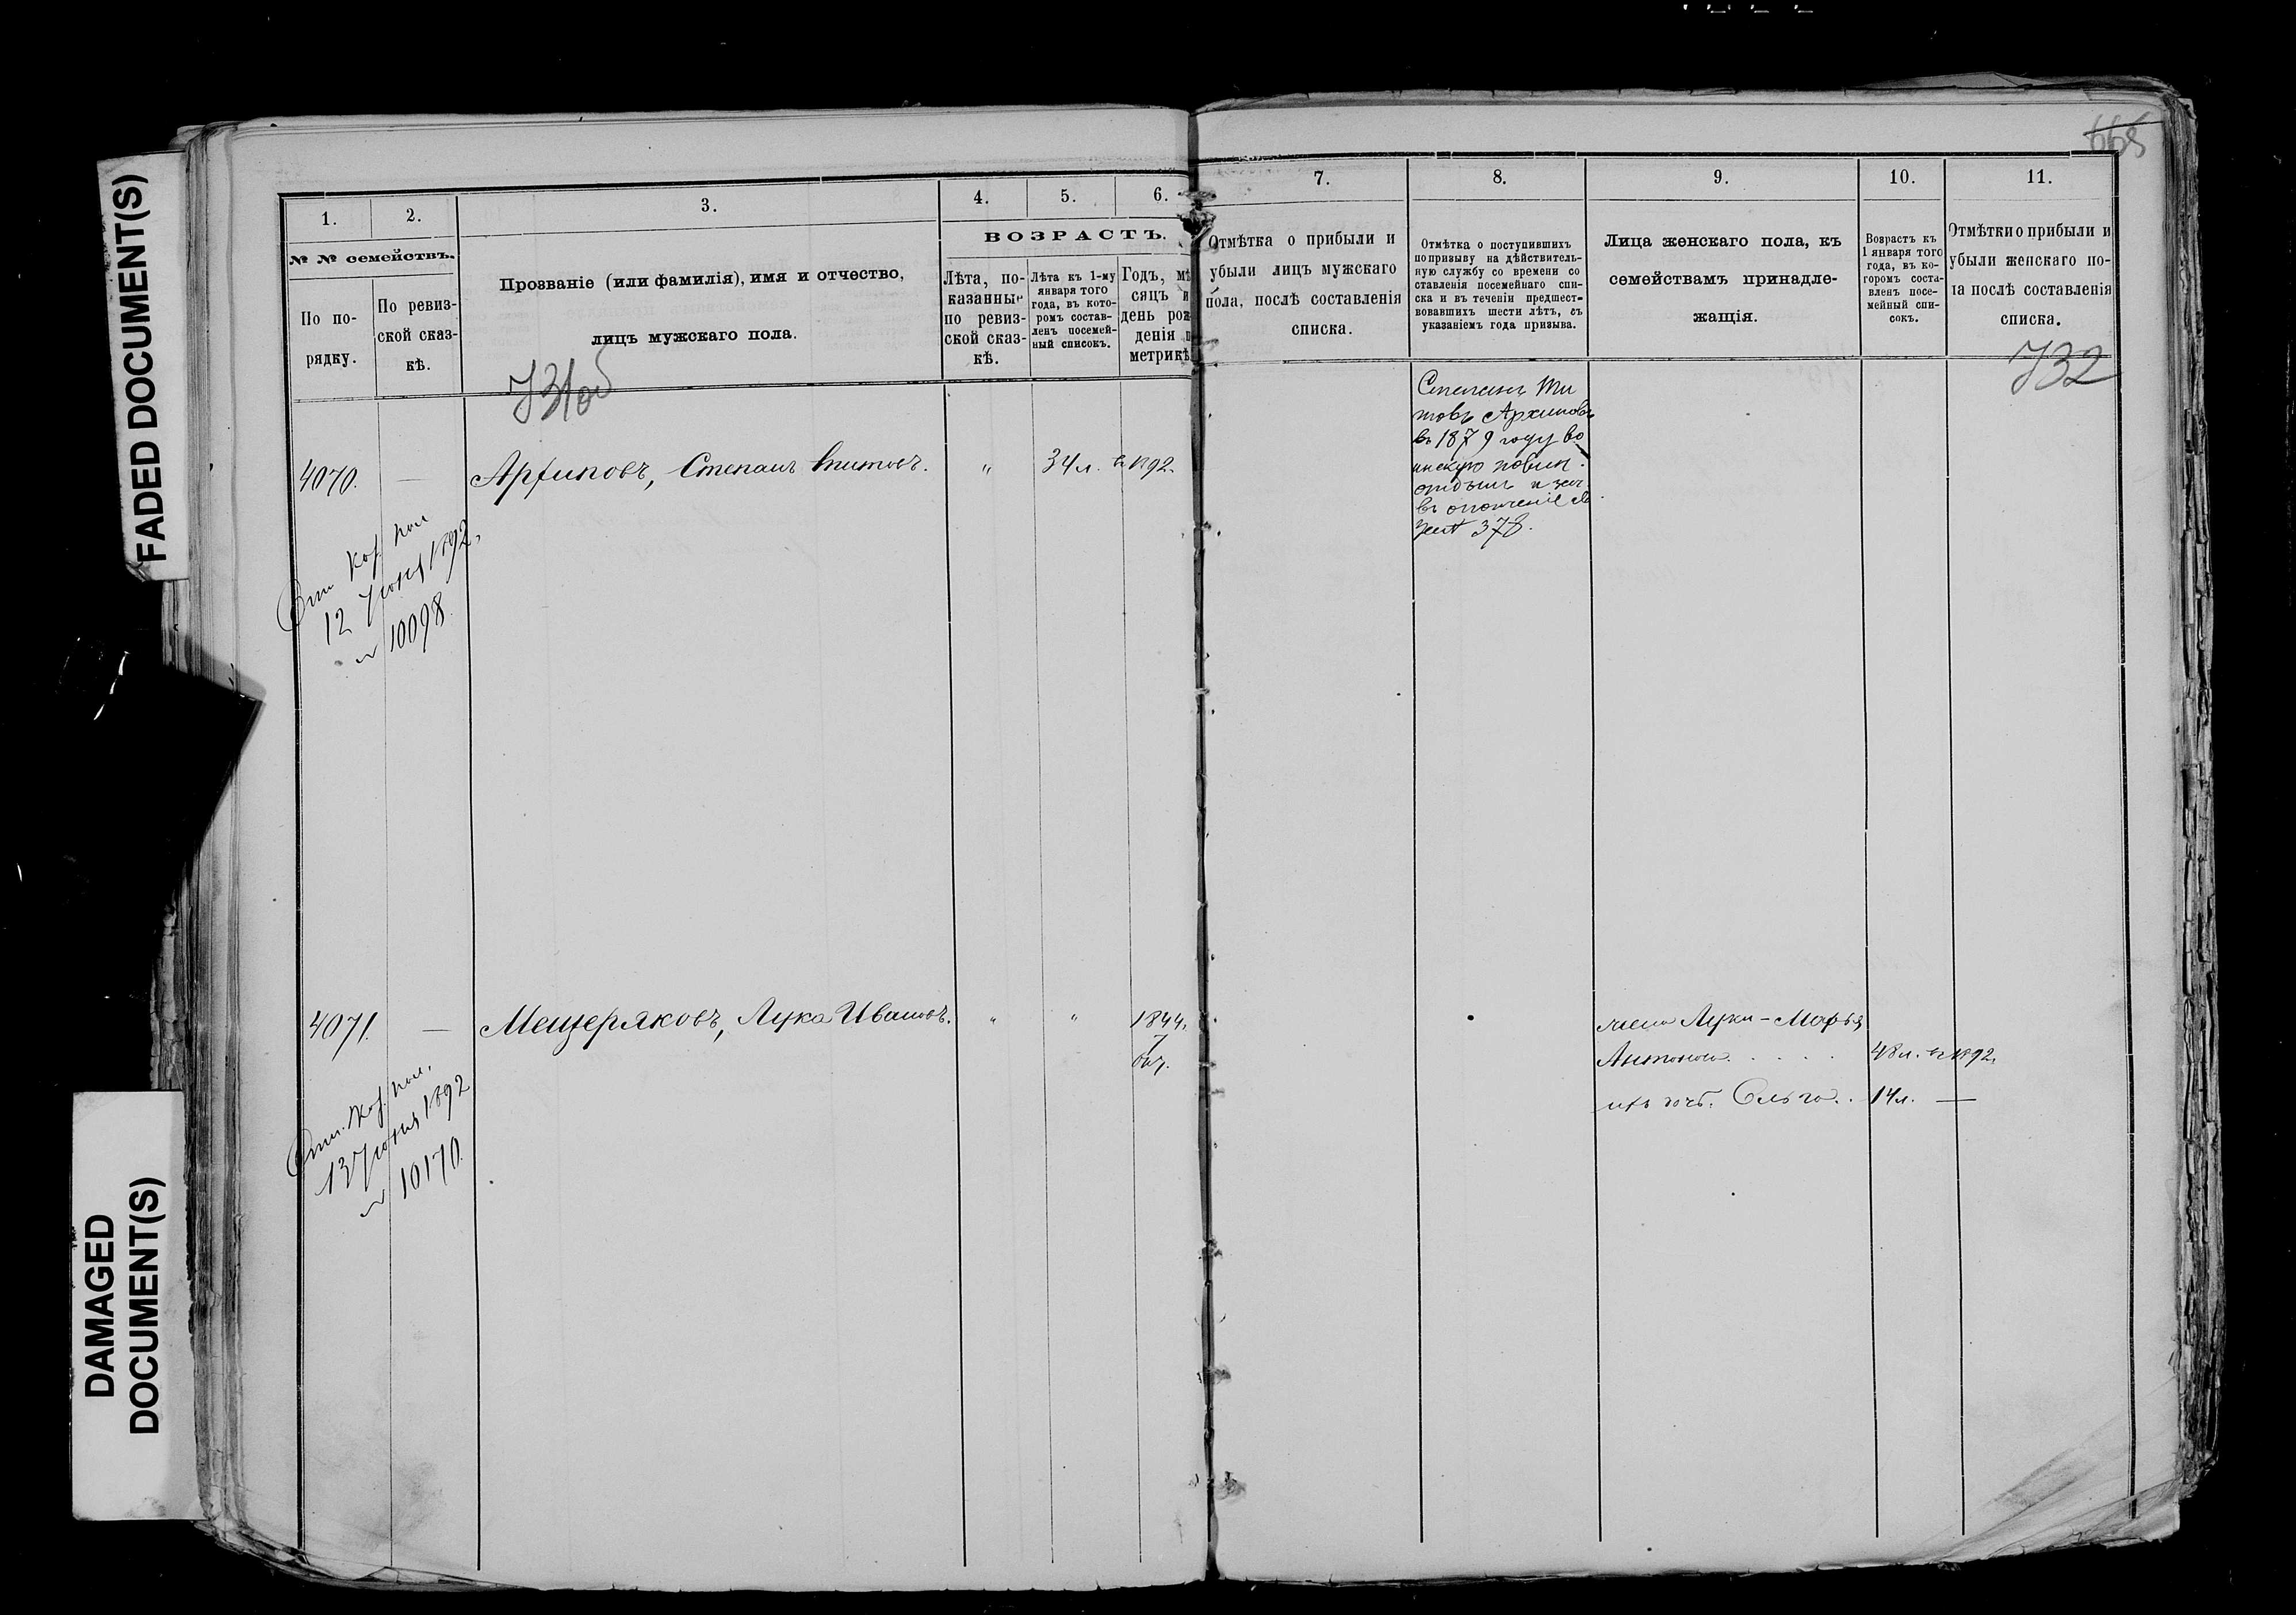 FADED DOCUMENT(S)
DAMAGED
DOCUMENT(S)
668
1.
2.
3.
4.
5.
6.
7.
8.
9.
10.
11.
№ № семействъ.
По по-
рядку.
По ревиз-
ской сказ-
кѣ.
Прозваніе (или фамилія), имя и отчество,
лицъ мужскаго пола.
ВОЗРАСТЪ.
Лѣта, по-
казанные
по ревиз-
ской сказ-
кѣ.
Лѣта къ 1-му
января того
года, въ кото-
ромъ состав-
ленъ посемей-
ный списокъ.
Годъ, мѣ
сяцъ и
день рож
денія п
метрикѣ
Отмѣтка о прибыли и
убыли лицъ мужскаго
пола, послѣ составленія
списка.
Отмѣтка о поступившихъ
по призыву на дѣйствитель-
ную службу со времени со
ставленія посемейнаго спи-
ска и въ теченіи предшест-
вовавшихъ шести лѣтъ, съ
указаніемъ года призыва.
Лица женскаго пола, къ
семействамъ принадле-
жащія.
Возрастъ къ
1 января того
года, въ ко-
торомъ соста-
вленъ посе-
мейный спи-
сокъ.
Отмѣтки о прибыли и
убыли женскаго по-
ла послѣ составленія
списка.
731об
732
4070. —
Архиповъ, Степанъ Титовъ.
" 34 л. въ 1892.
Степанъ Ти
товъ Архиповъ
въ 1879 году во
инскую повин.
отбылъ и зач.
въ ополченіе
378.
От. Каз. пал
12 Іюня 1892,
№ 10098.
4071. —
Мещеряковъ, Лука Ивановъ.
" " 1844.
жена Луки - Марья
Антонова. . . . . 48 л. въ 1892.
ихъ дочь. Ольга. . 14 л. —
От. Каз. пал.
13 Іюня 1892
№ 10170.